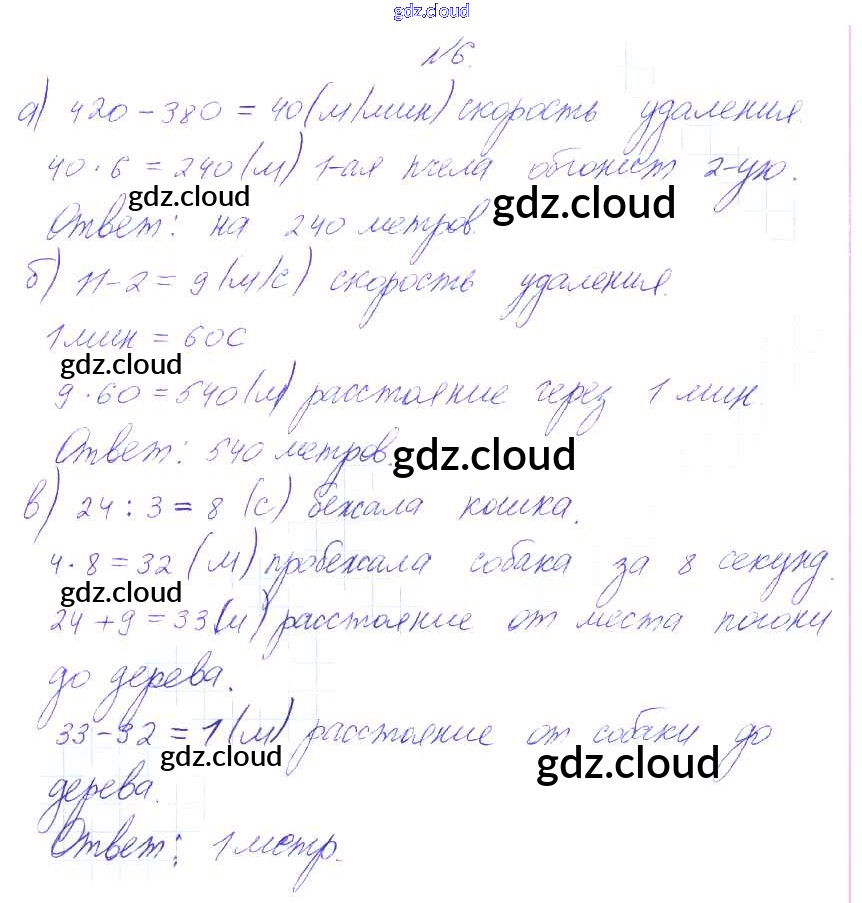 gdz.cloud
№6.
а) 420 - 380 = 40 (м/мин) скорость удаления.
40 · 6 = 240 (м) 1-ая пчела обгонит 2-ую.
gdz.cloud gdz.cloud
Ответ: на 240 метров.
б) 11 - 2 = 9 (м/с) скорость удаления.
1 мин = 60с
gdz.cloud
9 · 60 = 540 (м) расстояние через 1 мин.
Ответ: 540 метров.
gdz.cloud
в) 24 : 3 = 8 (с) бежала кошка.
4 · 8 = 32 (м) пробежала собака за 8 секунд.
gdz.cloud
24 + 9 = 33 (м) расстояние от места погони
до дерева.
33 - 32 = 1 (м) расстояние от собаки до
gdz.cloud gdz.cloud
дерева.
Ответ: 1 метр.